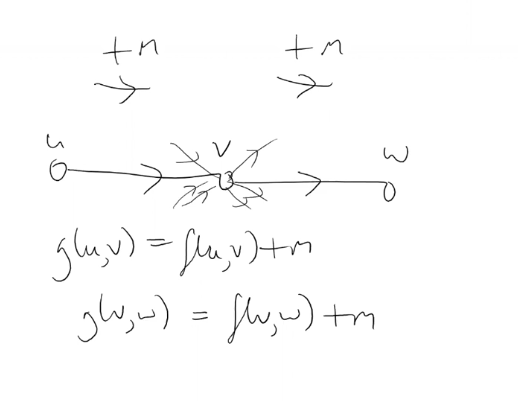 +m +m
u v w
g(u,v) = f(u,v)+m
g(v,w) = f(v,w)+m